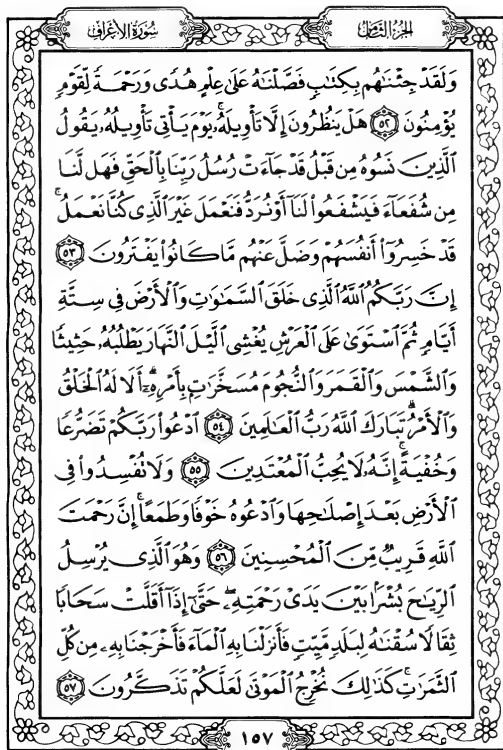 سُورَةُ الأَعۡرَافِ
الجُزۡءُ الثَّامِنُ
وَلَقَدۡ جِئۡنَٰهُم بِكِتَٰبٖ فَصَّلۡنَٰهُ عَلَىٰ عِلۡمٍ هُدٗى وَرَحۡمَةٗ لِّقَوۡمٖ
يُؤۡمِنُونَ ٥٢ هَلۡ يَنظُرُونَ إِلَّا تَأۡوِيلَهُۥۚ يَوۡمَ يَأۡتِي تَأۡوِيلُهُۥ يَقُولُ
ٱلَّذِينَ نَسُوهُ مِن قَبۡلُ قَدۡ جَآءَتۡ رُسُلُ رَبِّنَا بِٱلۡحَقِّ فَهَل لَّنَا
مِن شُفَعَآءَ فَيَشۡفَعُواْ لَنَآ أَوۡ نُرَدُّ فَنَعۡمَلَ غَيۡرَ ٱلَّذِي كُنَّا نَعۡمَلُۚ
قَدۡ خَسِرُوٓاْ أَنفُسَهُمۡ وَضَلَّ عَنۡهُم مَّا كَانُواْ يَفۡتَرُونَ ٥٣
إِنَّ رَبَّكُمُ ٱللَّهُ ٱلَّذِي خَلَقَ ٱلسَّمَٰوَٰتِ وَٱلۡأَرۡضَ فِي سِتَّةِ
أَيَّامٖ ثُمَّ ٱسۡتَوَىٰ عَلَى ٱلۡعَرۡشِۖ يُغۡشِي ٱلَّيۡلَ ٱلنَّهَارَ يَطۡلُبُهُۥ حَثِيثٗا
وَٱلشَّمۡسَ وَٱلۡقَمَرَ وَٱلنُّجُومَ مُسَخَّرَٰتِۭ بِأَمۡرِهِۦٓۗ أَلَا لَهُ ٱلۡخَلۡقُ
وَٱلۡأَمۡرُۗ تَبَارَكَ ٱللَّهُ رَبُّ ٱلۡعَٰلَمِينَ ٥٤ ٱدۡعُواْ رَبَّكُمۡ تَضَرُّعٗا
وَخُفۡيَةًۚ إِنَّهُۥ لَا يُحِبُّ ٱلۡمُعۡتَدِينَ ٥٥ وَلَا تُفۡسِدُواْ فِي
ٱلۡأَرۡضِ بَعۡدَ إِصۡلَٰحِهَا وَٱدۡعُوهُ خَوۡفٗا وَطَمَعًاۚ إِنَّ رَحۡمَتَ
ٱللَّهِ قَرِيبٞ مِّنَ ٱلۡمُحۡسِنِينَ ٥٦ وَهُوَ ٱلَّذِي يُرۡسِلُ
ٱلرِّيَٰحَ بُشۡرَۢا بَيۡنَ يَدَيۡ رَحۡمَتِهِۦۖ حَتَّىٰٓ إِذَآ أَقَلَّتۡ سَحَابٗا
ثِقَالٗا سُقۡنَٰهُ لِبَلَدٖ مَّيِّتٖ فَأَنزَلۡنَا بِهِ ٱلۡمَآءَ فَأَخۡرَجۡنَا بِهِۦ مِن كُلِّ
ٱلثَّمَرَٰتِۚ كَذَٰلِكَ نُخۡرِجُ ٱلۡمَوۡتَىٰ لَعَلَّكُمۡ تَذَكَّرُونَ ٥٧
١٥٧